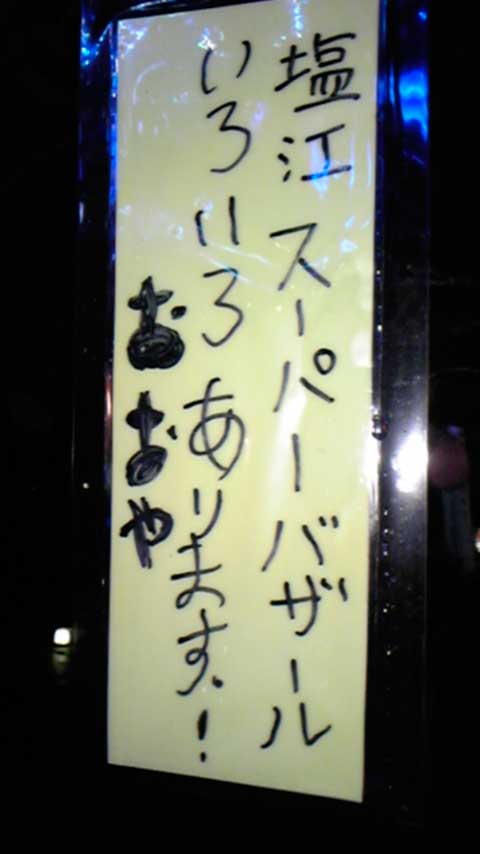 塩江スーパーバザール
いろいろあります!
おおや